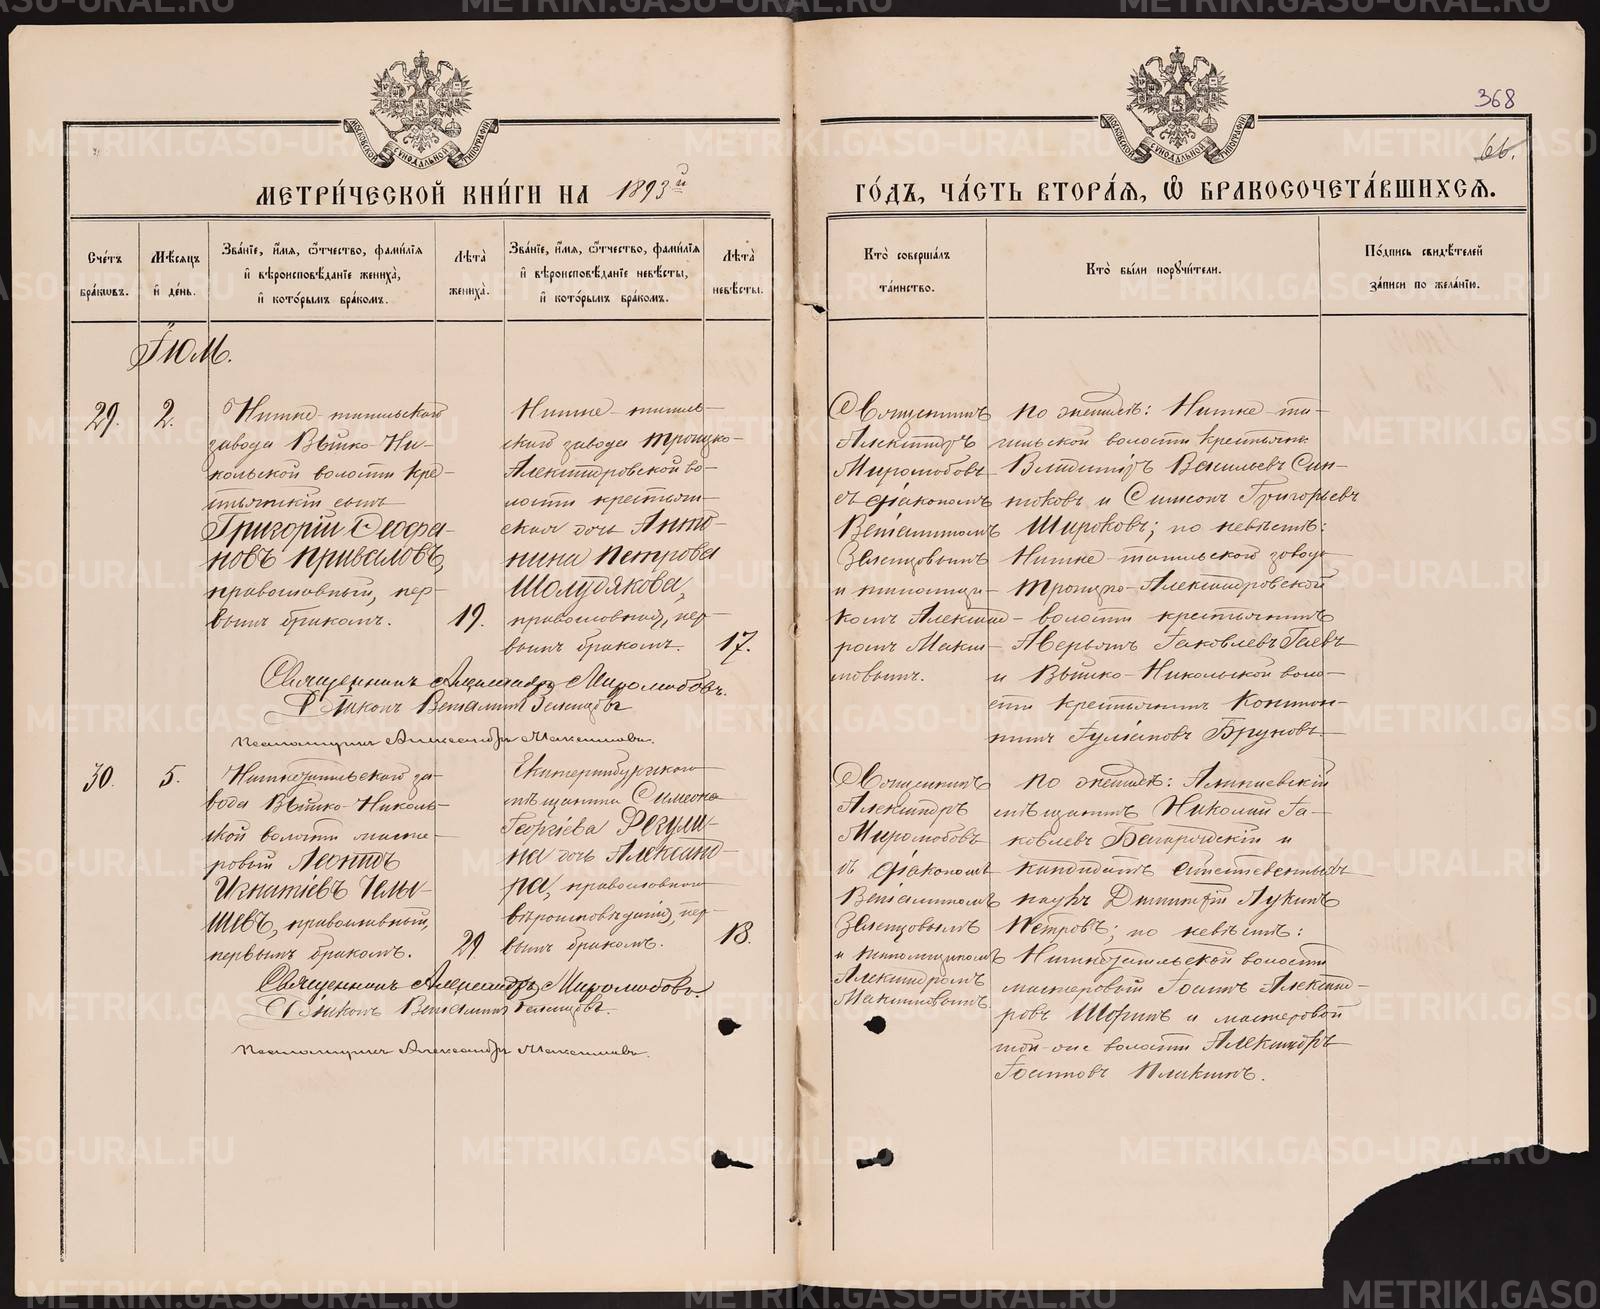 368
66.
МОСКОВСКОЙ СУНОДАЛЬНОЙ ТИПОГРАФІИ
МОСКОВСКОЙ СУНОДАЛЬНОЙ ТИПОГРАФІИ
МЕТРИ́ЧЕСКОЙ КНИ́ГИ НА 1893й
ГО́ДЪ, ЧА́СТЬ ВТОРА́Я, Ѿ БРАКОСОЧЕТА́ВШИХСЯ.
Сче́тъ бра́ковъ.
Мѣ́сяцъ и де́нь.
Зва́ніе, и́мя, ѻ҆́тчество, фами́лія
и҆ вѣроисповѣ́даніе жениха̀,
и҆ кото́рымъ бра́комъ.
Лѣ́та жениха̀.
Зва́ніе, и́мя, ѻ҆́тчество, фами́лія
и҆ вѣроисповѣ́даніе невѣ́сты,
и҆ кото́рымъ бра́комъ.
Лѣ́та невѣ́сты.
Кто̀ соверша́лъ
та́инство.
Кто̀ бы́ли поручи́тели.
По́дпись свидѣ́телей
за́писи по жела́нію.
Іюль.
29.
2.
Нижне-тагильскаго
завода Выйско-Ни-
кольской волости кре-
стьянскій сынъ
Григорій Ѳеофа-
новъ Приваловъ,
православный, пер-
вымъ бракомъ.
19.
Нижне-тагиль-
скаго завода Троицко-
Александровской во-
лости крестьян-
ская дочь Анто-
нина Петрова
Шолудякова,
православной, пер-
вымъ бракомъ.
17.
Священникъ
Александръ
Миролюбовъ
съ діакономъ
Веніаминомъ
Зеленцовымъ
и псаломщи-
комъ Александ-
ромъ Макси-
мовымъ.
По женихѣ: Нижне-та-
гильской волости крестьяне
Владиміръ Васильевъ Син-
цовъ и Симеонъ Григорьевъ
Широковъ; по невѣстѣ:
Нижне-тагильскаго завода
Троицко-Александровской
волости крестьянинъ
Аверьянъ Іаковлевъ Гаевъ
и Выйско-Никольской воло-
сти крестьянинъ Констан-
тинъ Іуліановъ Бруновъ.
Священникъ Александръ Миролюбовъ.
Діаконъ Веніаминъ Зеленцовъ
Псаломщикъ Александръ Максимовъ.
30.
5.
Нижнетагильскаго за-
вода Выйско-Николь-
ской волости масте-
ровый Леонтій
Игнатіевъ Челы-
шевъ, православный,
первымъ бракомъ.
29.
Екатеринбургскаго
мѣщанина Симеона
Георгіева Рагузи-
на дочь Александ-
ра, православнаго
вѣроисповѣданія, пер-
вымъ бракомъ.
18.
Священникъ
Александръ
Миролюбовъ
съ діакономъ
Веніаминомъ
Зеленцовымъ
и псаломщикомъ
Александромъ
Максимовымъ
По женихѣ: Алапаевскій
мѣщанинъ Николай Іа-
ковлевъ Богородскій и
кандидатъ естественныхъ
наукъ Димитрій Лукинъ
Петровъ; по невѣстѣ:
Нижнетагильской волости
мастеровый Іоаннъ Александ-
ровъ Шоринъ и мастеровой
той-же волости Александръ
Іоанновъ Плакинъ.
Священникъ Александръ Миролюбовъ.
Діаконъ Веніаминъ Зеленцовъ.
Псаломщикъ Александръ Максимовъ.
METRIKI.GASO-URAL.RU